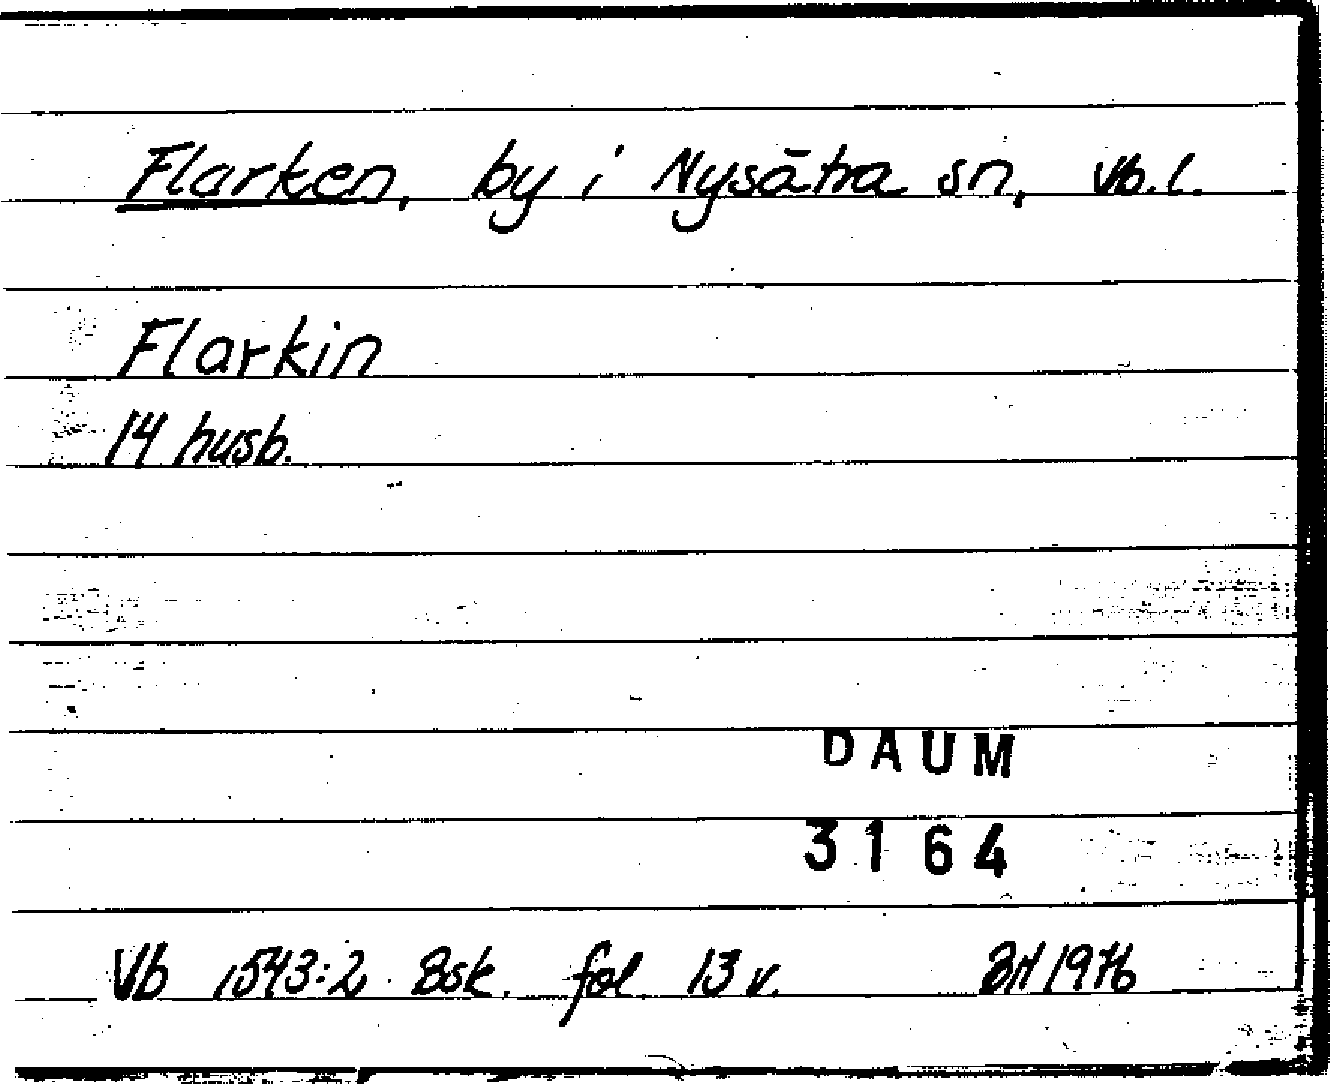 Flarken, by i Nysätra sn, Vb.l.
Flarkin
14 husb.
DAUM
3164
Vb 1543:2 Bsk. fol 13 v. 1976